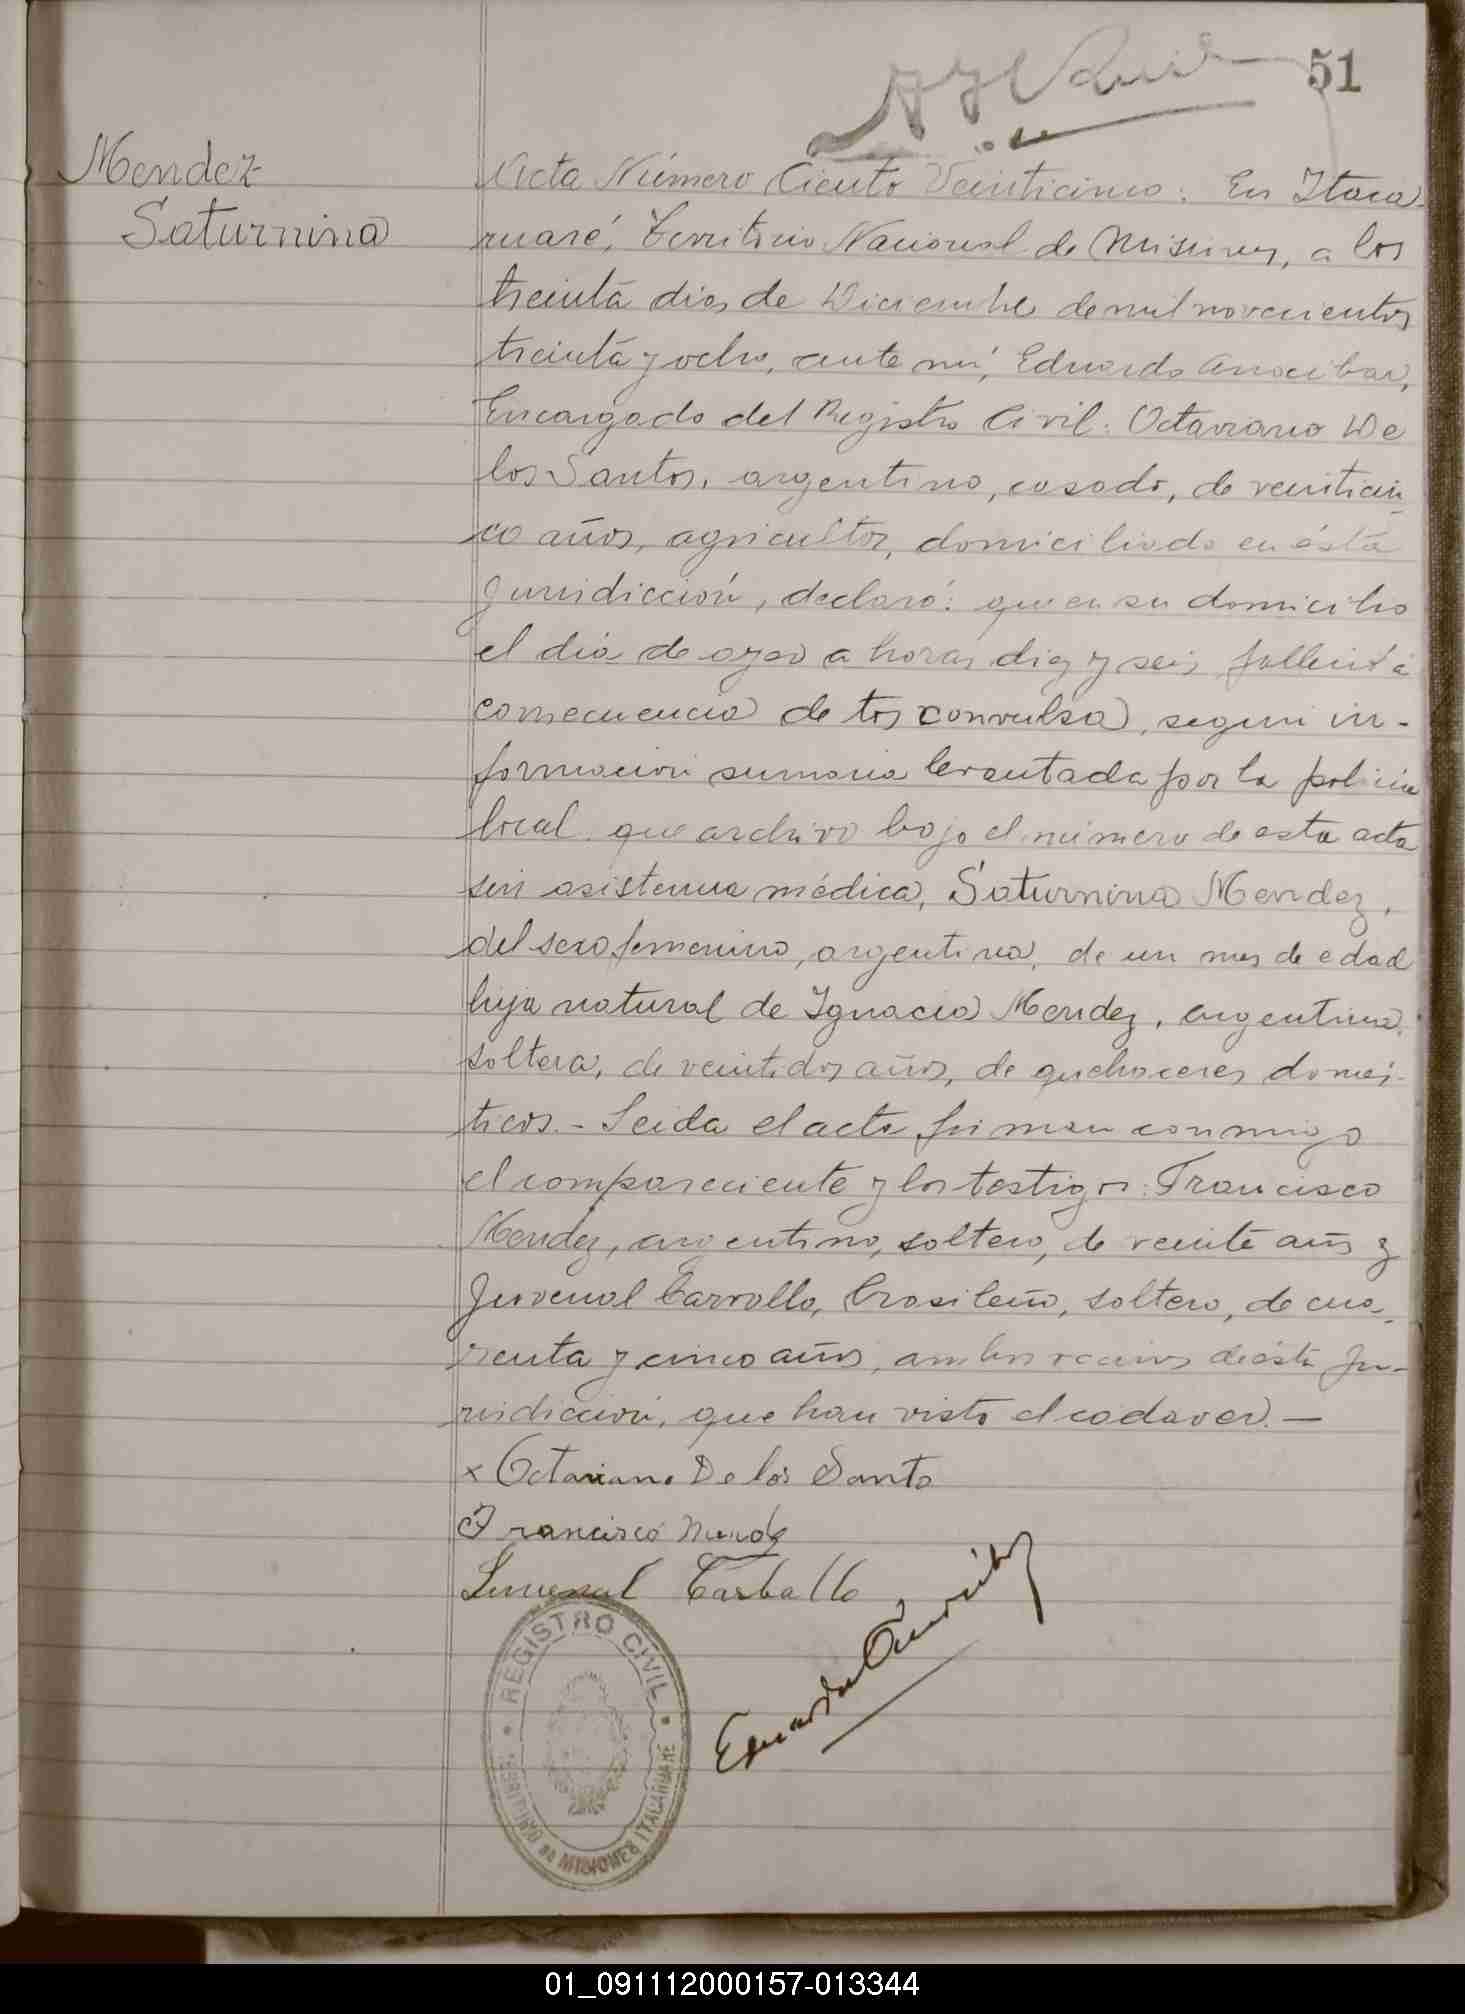 51
Mendez
Saturnina
Acta Número Ciento Veinticinco: En Itaca-
ruaré, Territorio Nacional de Misiones, a los
treinta dias de Diciembre de mil novecientos
treinta y ocho, ante mi, Eduardo
Encargado del Registro Civil: Octaviano De
los Santos, argentino, casado, de veinticin-
co años, agricultor, domiciliado en ésta
Jurisdicción, declaró: que en su domicilio
el dia de ayer a horas diez y seis, falleció á
consecuencia de tos convulsa, segun in-
formacion sumaria levantada por la policia
local que archivo bajo el número de esta acta
sin asistencia médica, Saturnina Mendez,
del sexo femenino, argentina, de un mes de edad
hija natural de Ignacia Mendez, argentina,
soltera, de veintidos años, de quehaceres domés-
ticos.- Leida el acta firman conmigo
el compareciente y los testigos: Francisco
Mendez, argentino, soltero, de veinte años y
Juvenal Carvallo, brasileño, soltero, de cua-
renta y cinco años, ambos vecinos de ésta Ju-
risdicción, que han visto el cadaver.—
x Octaviano De los Santo
Francisco Mendez
Juvenal Carballo
Eduardo
REGISTRO CIVIL
TERRITORIO DE MISIONES ITACARUARÉ
01_091112000157-013344